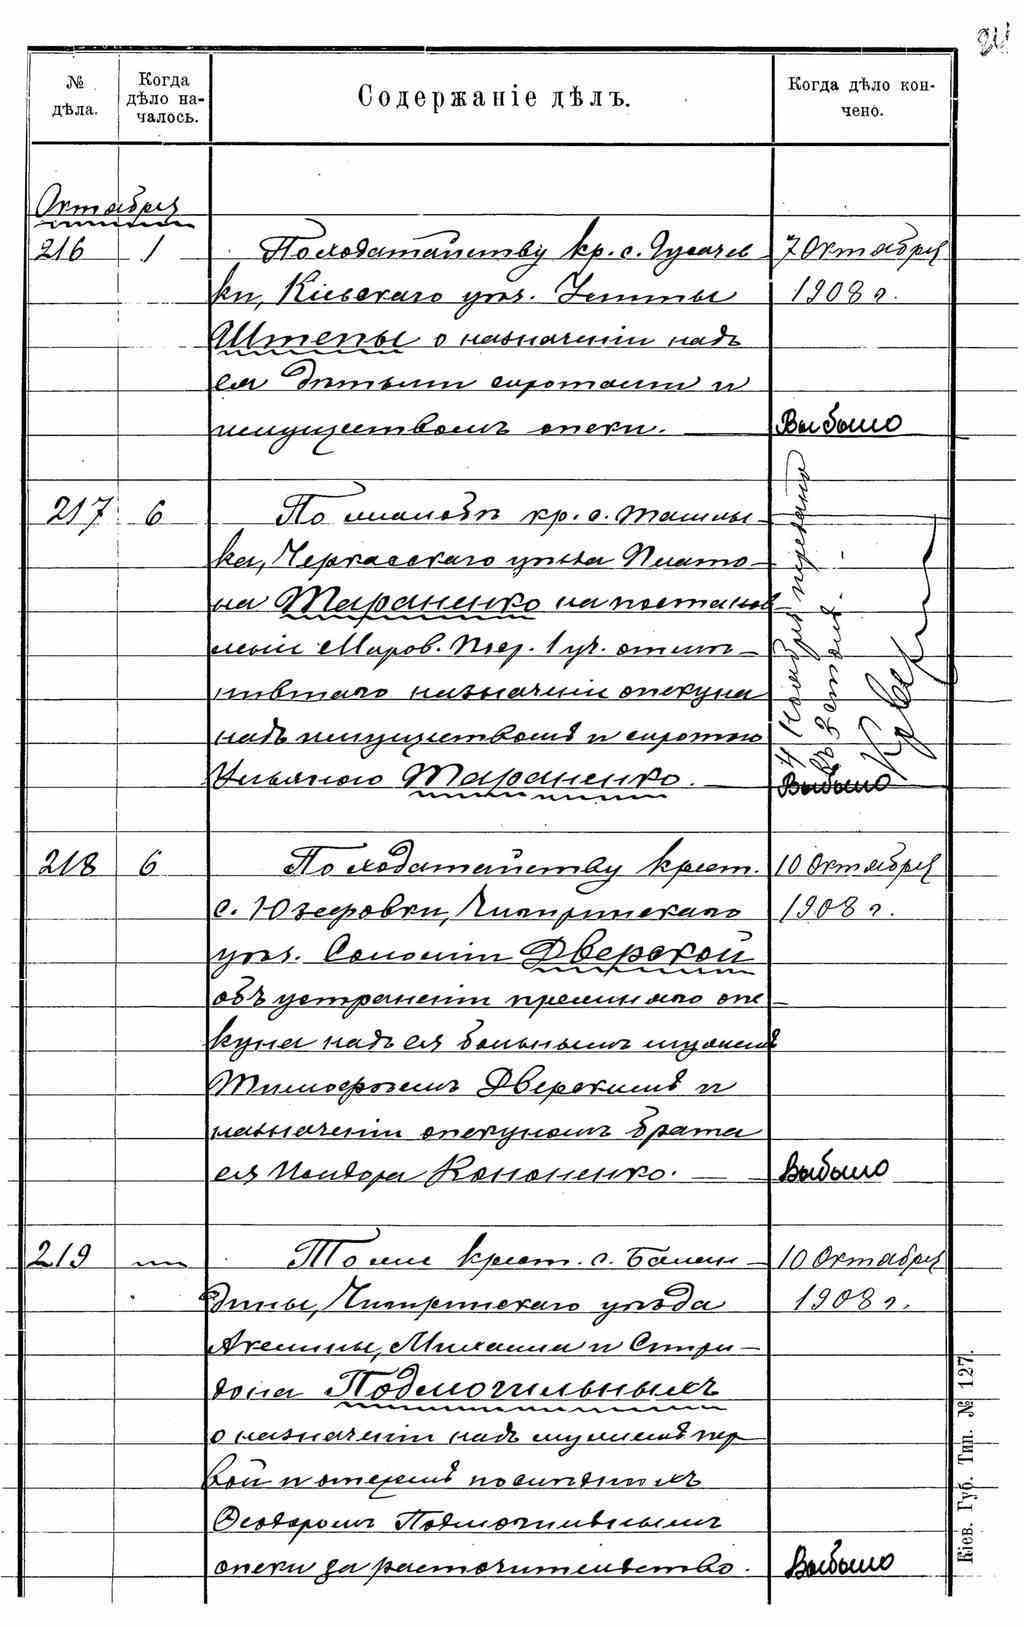 № дѣла.
Когда дѣло на-
чалось.
Содержаніе дѣлъ.
Когда дѣло кон-
чено.
Октября
216 1 По ходатайству кр. с. Гусачев- 7 Октября
ки, Кіевскаго уѣз. 1908 г.
Штепы о назначеніи надъ
ея дѣтьми сиротами и
имуществомъ опеки. Выбыло
217 6 По жалобѣ кр. с. Ташлы-
ка, Черкасскаго уѣзда Плато-
на Тараненко на постанов-
леніе Миров. Поср. 1 уч. отмѣ-
нившаго назначеніе опекуна
надъ имуществомъ и сиротою
Ульяною Тараненко. Выбыло
4 Ноября передано
въ 3 столъ.
218 6 По ходатайству крест. 10 Октября
с. Юзефовки, Чигиринскаго 1908 г.
уѣз. Соломіи Дверской
объ устраненіи прежняго опе-
куна надъ ея больнымъ мужемъ
Тимофѣемъ Дверскимъ и
назначеніи опекуномъ брата
ея Исидора Кононенко. Выбыло
219 То же крест. с. Балан- 10 Октября
дины, Чигиринскаго уѣзда 1908 г.
Акелины, Михаила и Спири-
дона Подмогильныхъ
о назначеніи надъ мужемъ пер
вой и отцемъ послѣднихъ
Феодоромъ Подмогильнымъ
опеки за расточительство. Выбыло
Кіев. Губ. Тип. № 127.